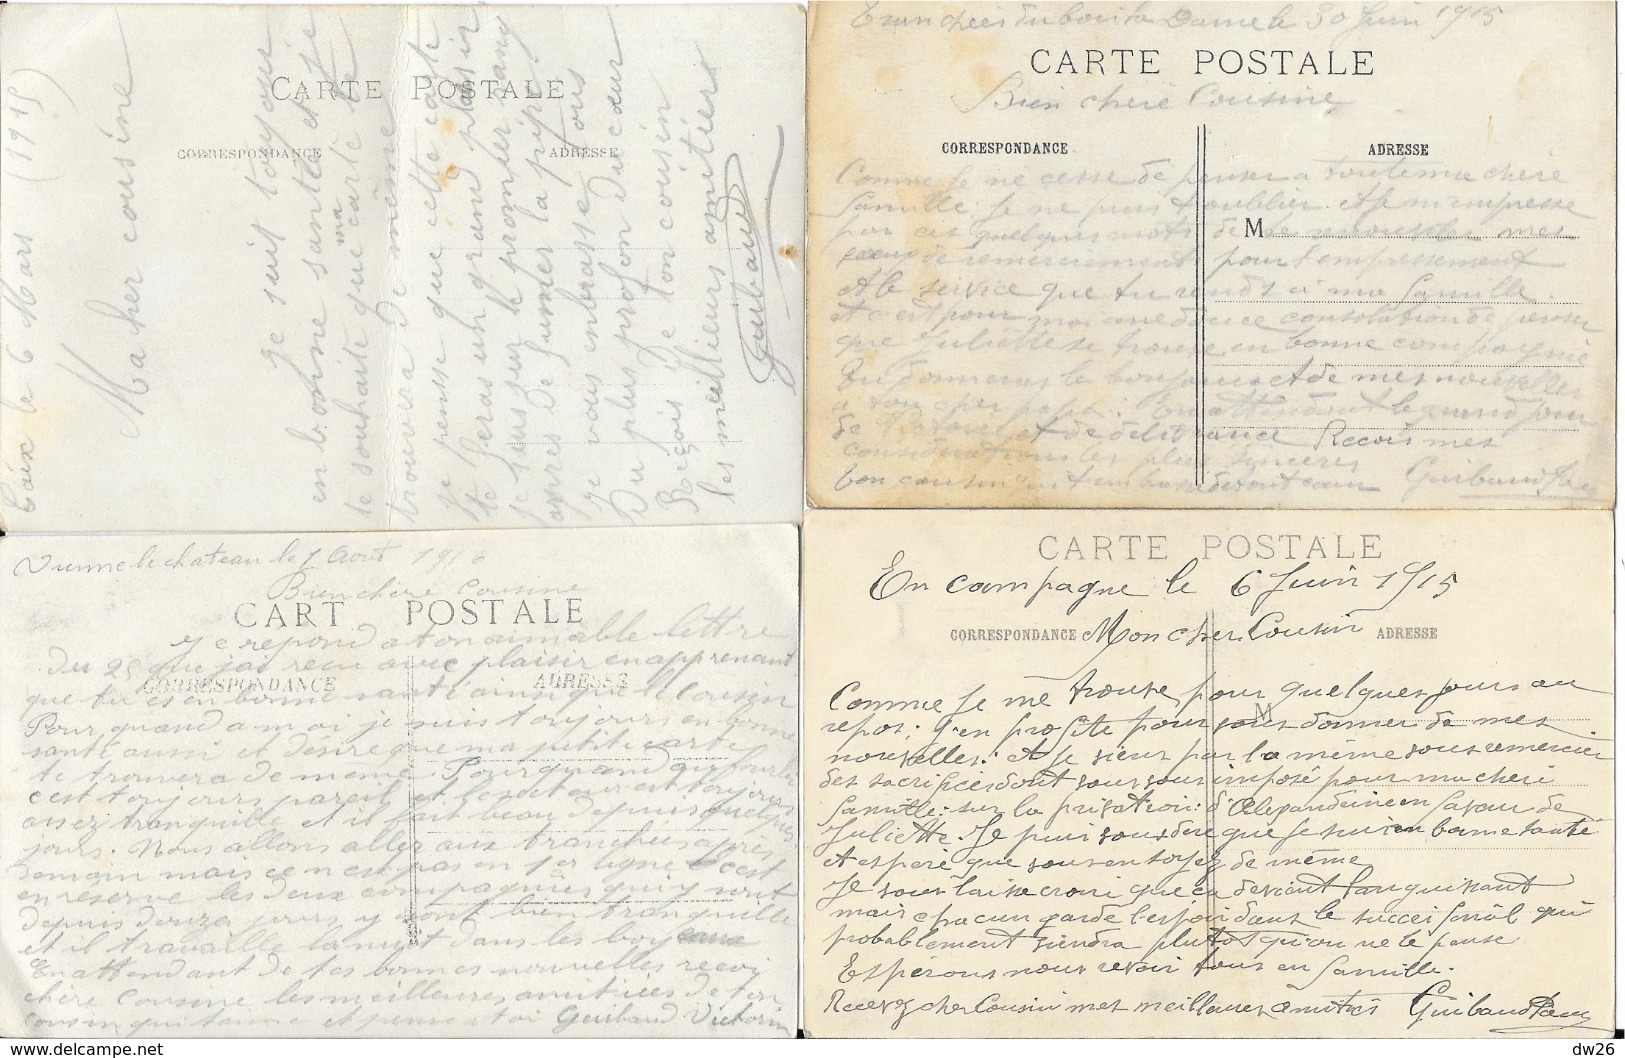 Caix le 6 Mars (1915)
CARTE POSTALE
CORRESPONDANCE
ADRESSE
Ma cher cousine
je suit toujour
en bonne santée et je
te souhaite que ma carte te
trouvera de même
je pense que cette carte
te feras un grand plaisir
je suis sur le promier rang
apres de fumer la pipe
je vous enbrasse tous
Du plus profon du cœur
Reçois de ton cousin
les meillieurs amitier
Guibaud
Tranchées du bois la Dame le 30 Juin 1915
CARTE POSTALE
Bien chère Cousine
CORRESPONDANCE
ADRESSE
M
Comme Je ne cesse de penser a toute ma chère
famille: Je ne puis t'oublier. Et Je m'empresse
par ces quelques mots de te renouveler mes
de remerciements pour l'empressement
Et le service que tu rends à ma famille.
Et c'est pour moi une douce consolation de penser
que Juliette se trouve en bonne compagnie
Tu donneras le bonjour et de mes nouvelles
a ton cher papa: En attendant le grand jour
de victoire et de délivrance Recois mes
considerations les plus sinceres
bon cousin qui t'embrasse de tout cœur Guibaud Paul
Vienne le chateau le 1 Aout 1916
Bien chère Cousine
CART POSTALE
CORRESPONDANCE
ADRESSE
Je repond a ton aimable lettre
du 25 que j'ai recu avec plaisir en apprenant
que tu es en bonne santé ainsi que le Cousin
Pour quand a moi je suis toujours en bonne
santé aussi et desire que ma petite carte
te trouvera de même. Pour quand
c'est toujours pareil et le secteur est toujours
assez tranquille et il fait beau depuis quelques
jours. Nous allons aller aux tranchées après
demain mais ce n'est pas en 1er ligne c'est
en reserve les deux compagnies qui y sont
depuis douze jours y sont bien tranquille
et il travaille la nuit dans les boyeaux
En attendant de tes bonnes nouvelles recoi
chère Cousine les meilleures amitiées de ton
cousin qui t'aime et pense a toi Guibaud Victorin
CARTE POSTALE
En campagne le 6 Juin 1915
CORRESPONDANCE
Mon cher Cousin
ADRESSE
M
Comme Je me trouve pour quelques jours au
repos; J'en profite pour vous donner de mes
nouvelles: Et Je viens par la même vous remercier
des sacrifices dont vous vous imposé pour ma chère
famille: sur la privation: d'Alexandrine en faveur de
Juliette. Je puis vous dire que Je suis en bonne santé
et espere que vous en soyez de même
Je vous laisse croire que ca devient languissant
mais chacun garde l'espoir dans le succei final qui
probablement viendra plutot qu'on ne le pense
Espérons nous revoir tous en famille.
Recevez cher Cousin mes meilleures amitiés Guibaud Paul
dw26
www.delcampe.net